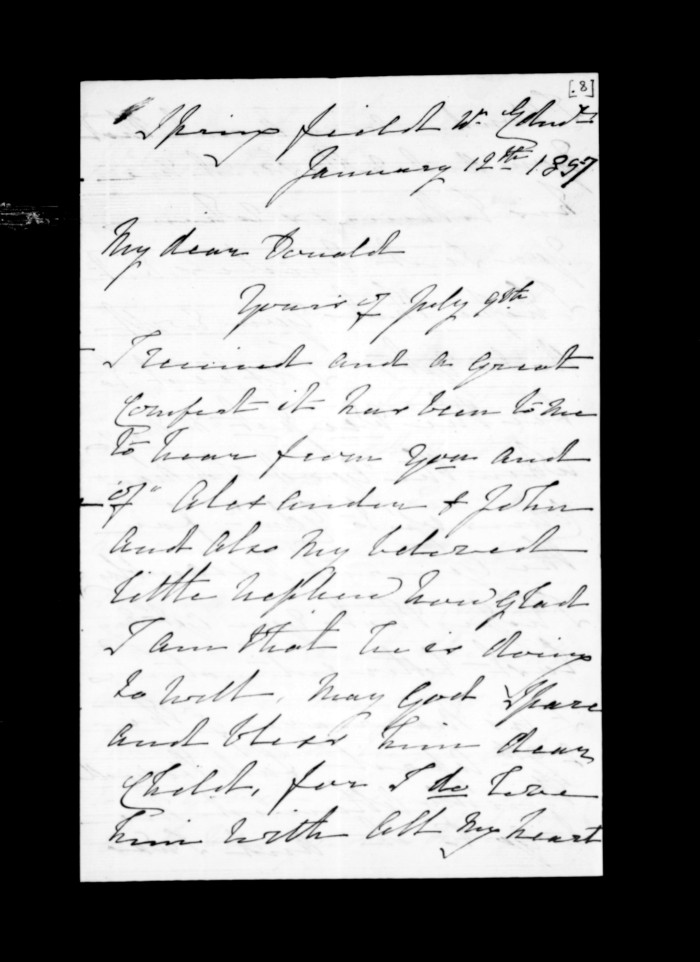 [.8]
Spring field Nr. Edinr.
January 12th 1857
My dear Donald
Yours of July 9th
I received and a great
comfort it has been to me
to hear from You and
"of" Alexander & John
and also My beloved
little Nephew how glad
I am that he is doing
so well, May God Spare
and bless him dear
Child, for I do love
him with all My heart